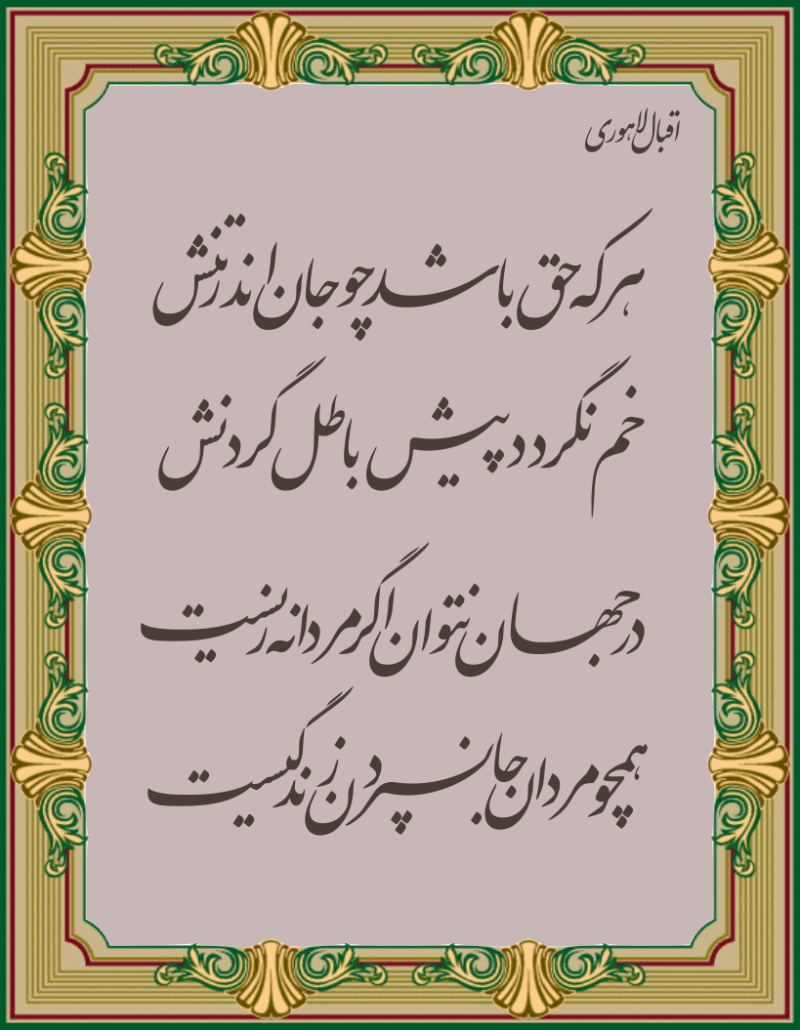 اقبال لاهوری
هرکه حق باشد چو جان اندر تنش
خم نگردد پیش باطل گردنش
در جهان نتوان اگر مردانه زیست
همچو مردان جان سپردن زندگیست